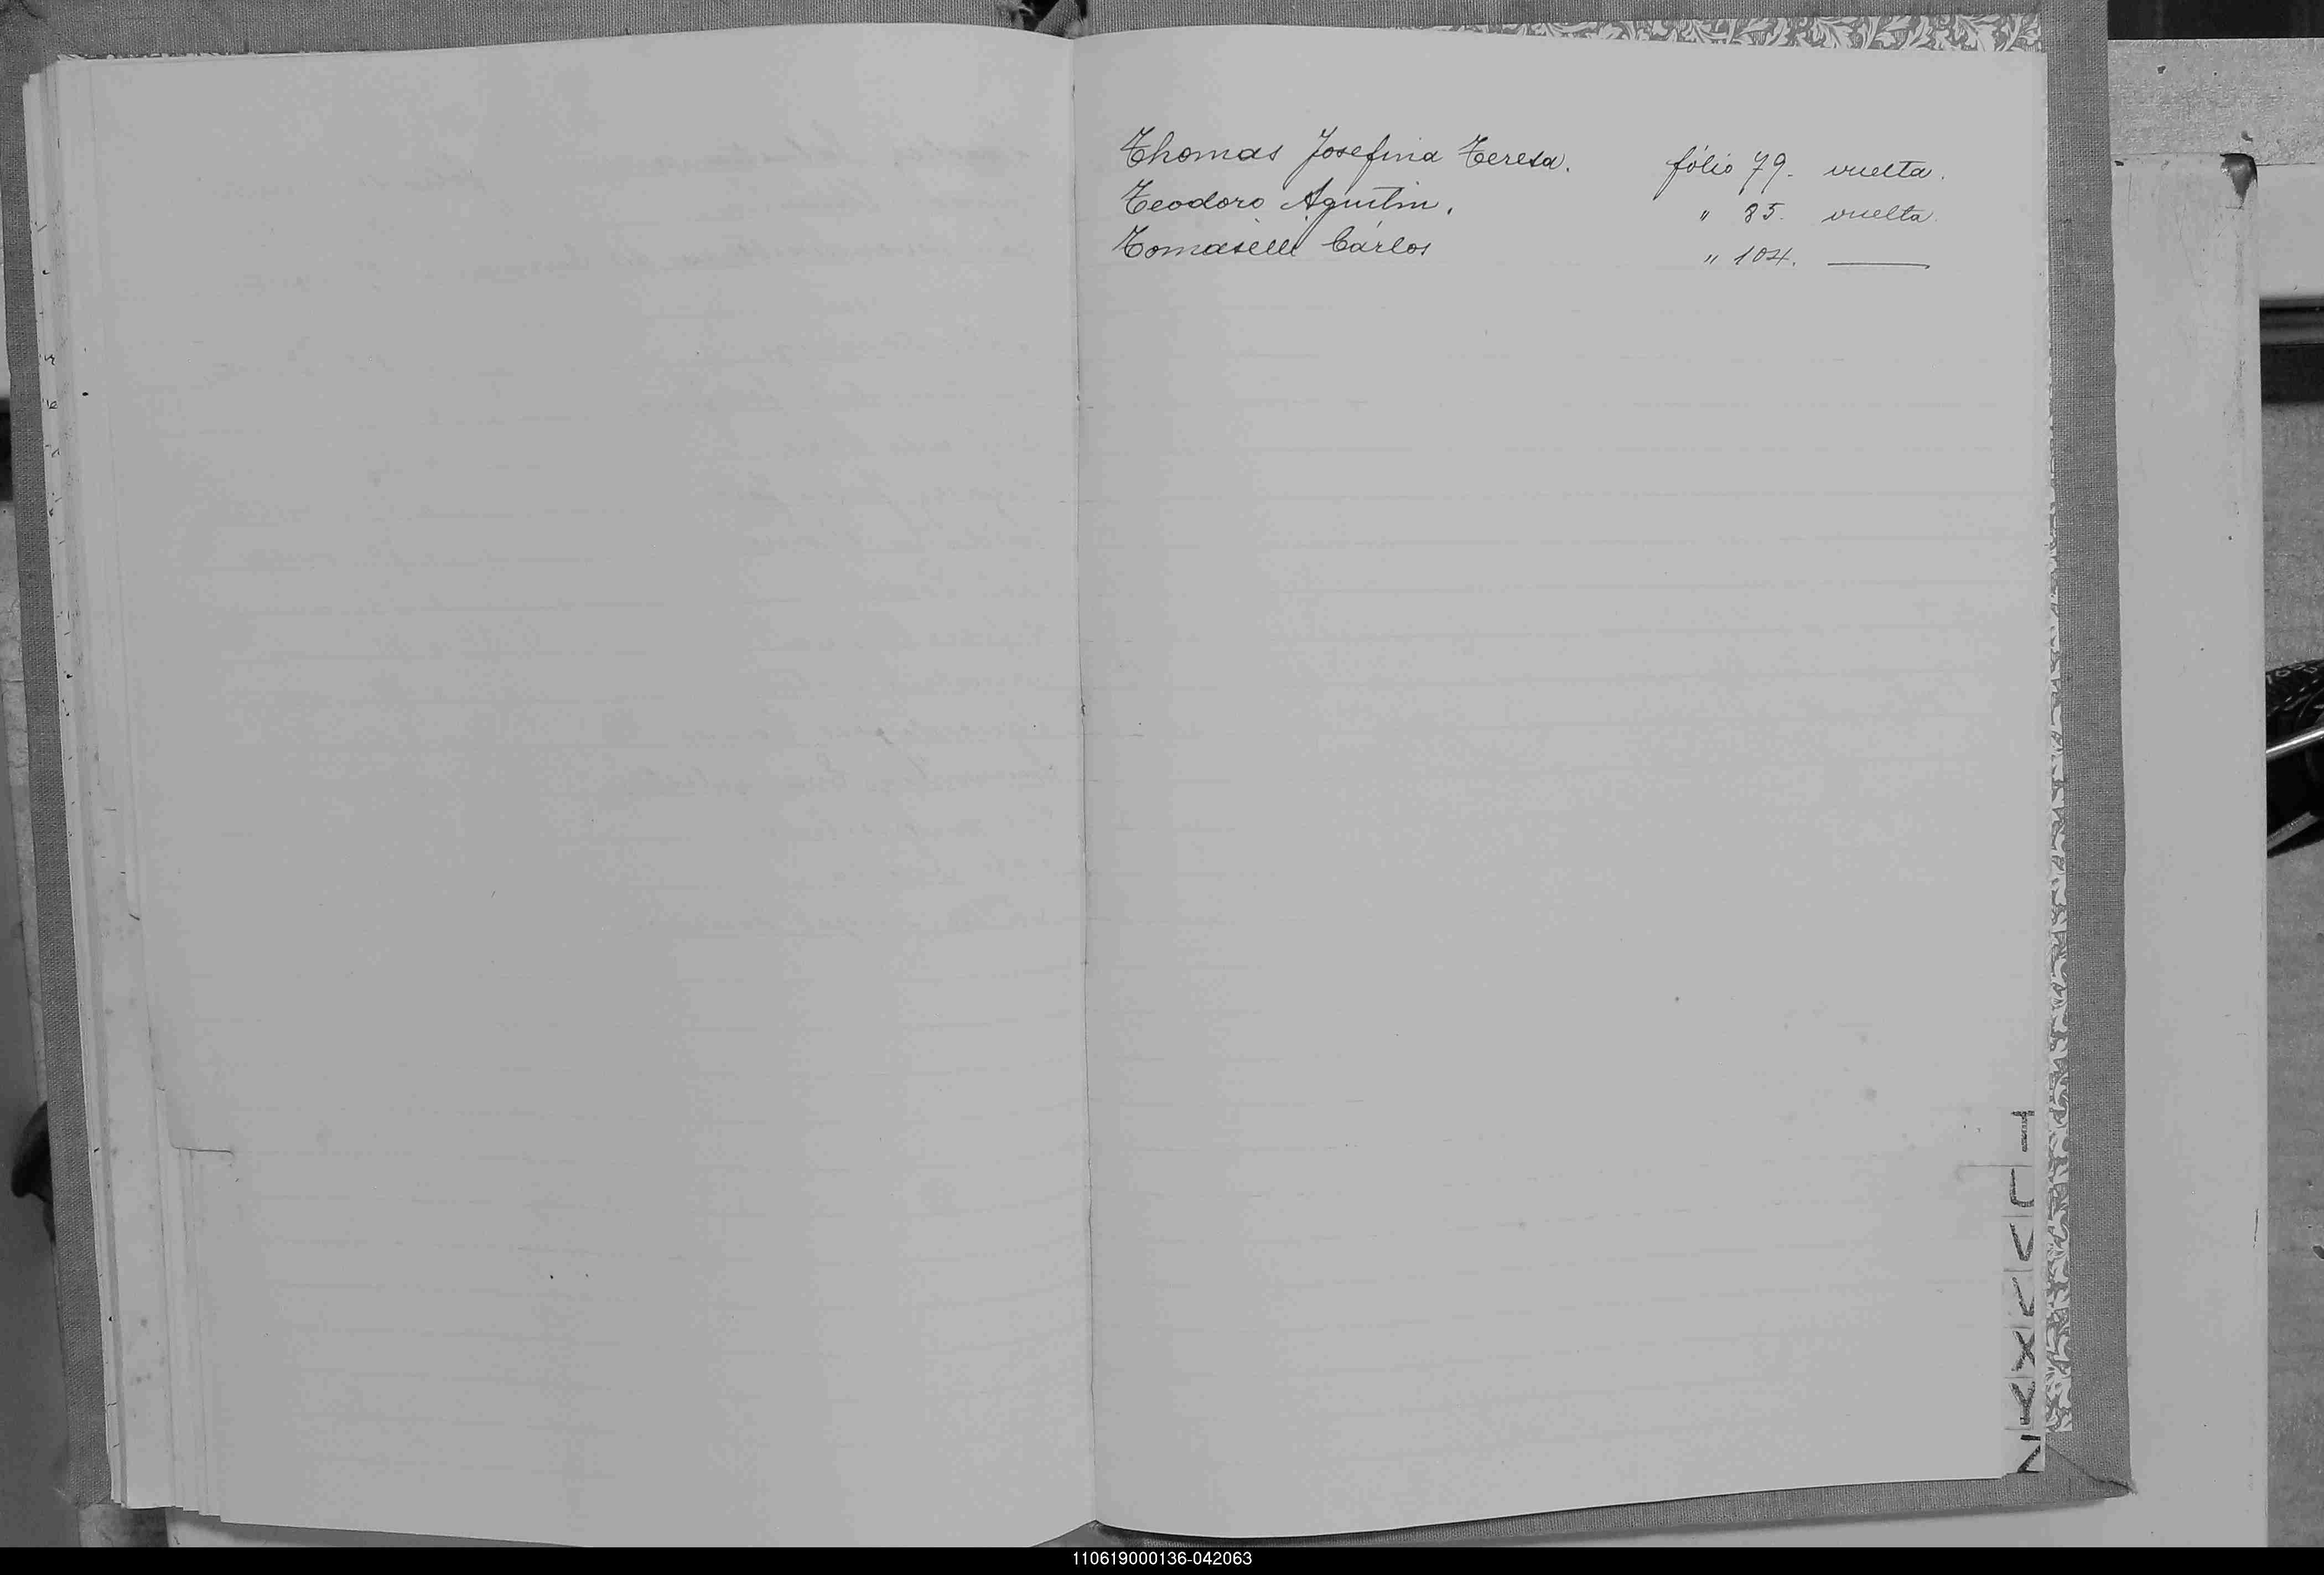 Thomas Josefina Teresa. fólio 79. vuelta.
Teodoro Agustin. " 85. vuelta.
Tomaselli Cárlos " 104. ———
T
U
V
V
X
Y
Z
110619000136-042063